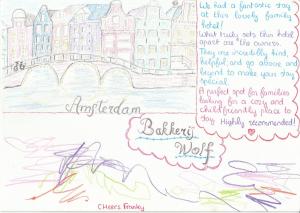 We had a fantastic stay
at this lovely family
hotel!
What truly sets this hotel
apart are the owners.
They are incredibly kind,
helpful and go above and
beyond to make your stay
special.
A perfect spot for families
looking for a cozy and
childfriendly place to
stay. Highly recommended!
Amsterdam
Bakkerij
Wolf
Cheers, Franky